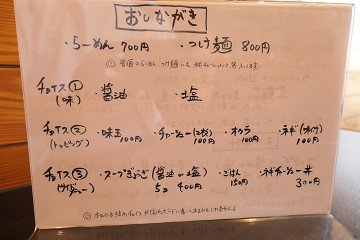 おしながき
・らーめん 700円 ・つけ麺 800円
チョイス①
(味)
・醤油 ・塩
チョイス②
(トッピング)
・味玉 100円 ・チャーシュー(2枚) 100円 ・オクラ 100円 ・ネギ(味付) 100円
チョイス③
(サイドメニュー)
・スープぎょうざ(醤油 or 塩) 5コ 400円 ・ごはん 150円 ・チャーシュー丼 300円